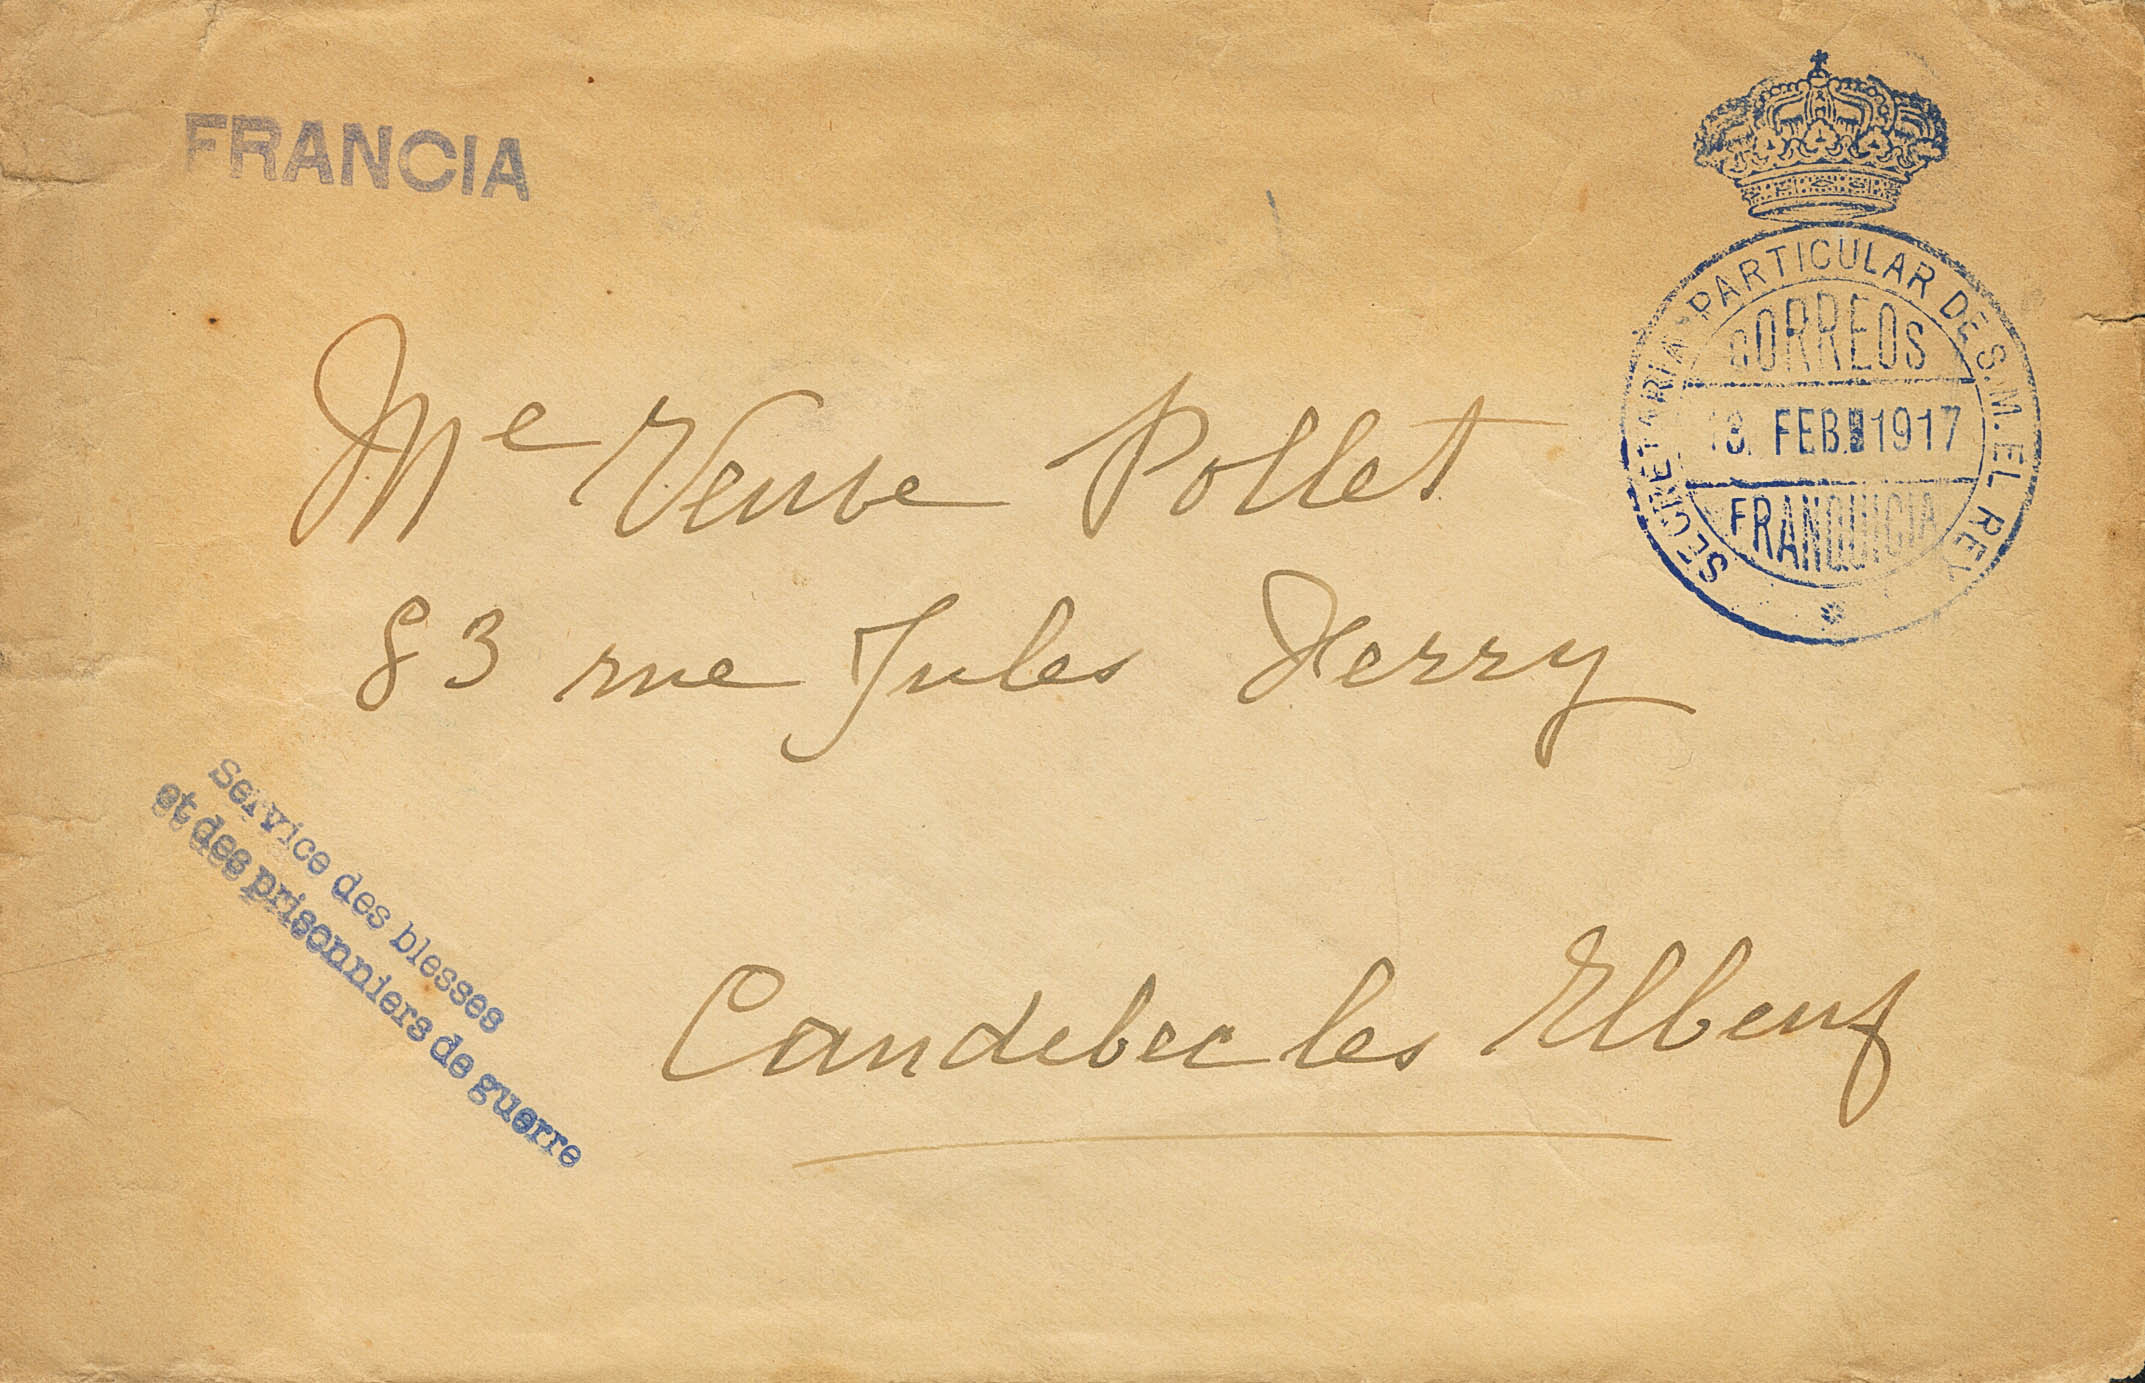 FRANCIA
SECRETARIA PARTICULAR DE S.M. EL REY
CORREOS
13. FEB. 1917
FRANQUICIA
Me Veuve Pollet
83 rue Jules Ferry
Service des blesses
et des prisonniers de guerre
Caudebec les Elbeuf